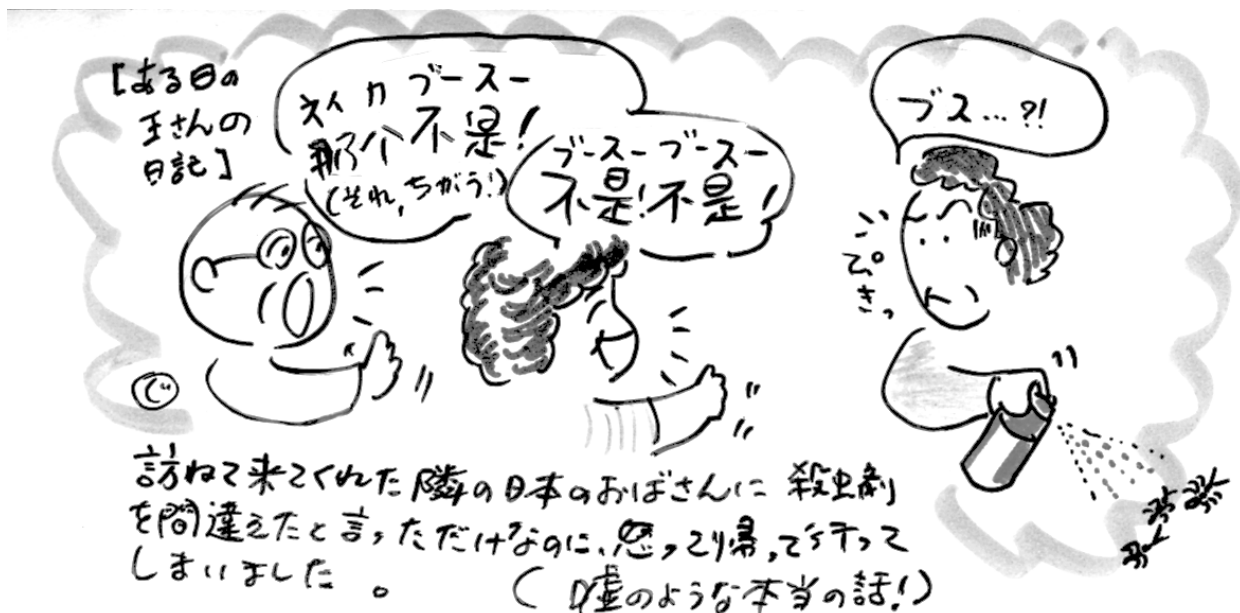 【ある日の
王さんの
日記】
ネイ カ ブースー
那个不是!
(それ,ちがう!)
ブースー ブースー
不是!不是!
ブス…?!
ぴきっ
訪ねて来てくれた隣の日本のおばさんに 殺虫剤
を間違えたと言っただけなのに、怒って帰って行って
しまいました。
(嘘のような本当の話!)